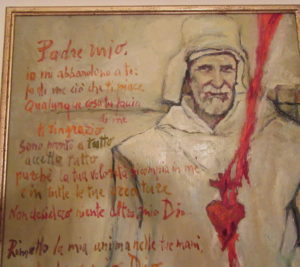 Padre mio,
io mi abbandono a te:
fa di me ciò che ti piace.
Qualunque cosa tu faccia
di me
ti ringrazio
Sono pronto a tutto
accetto tutto
purché la tua volontà si compia in me
e in tutte le tue creature
Non desidero niente altro, mio Dio
Rimetto la mia anima nelle tue mani,
Dio